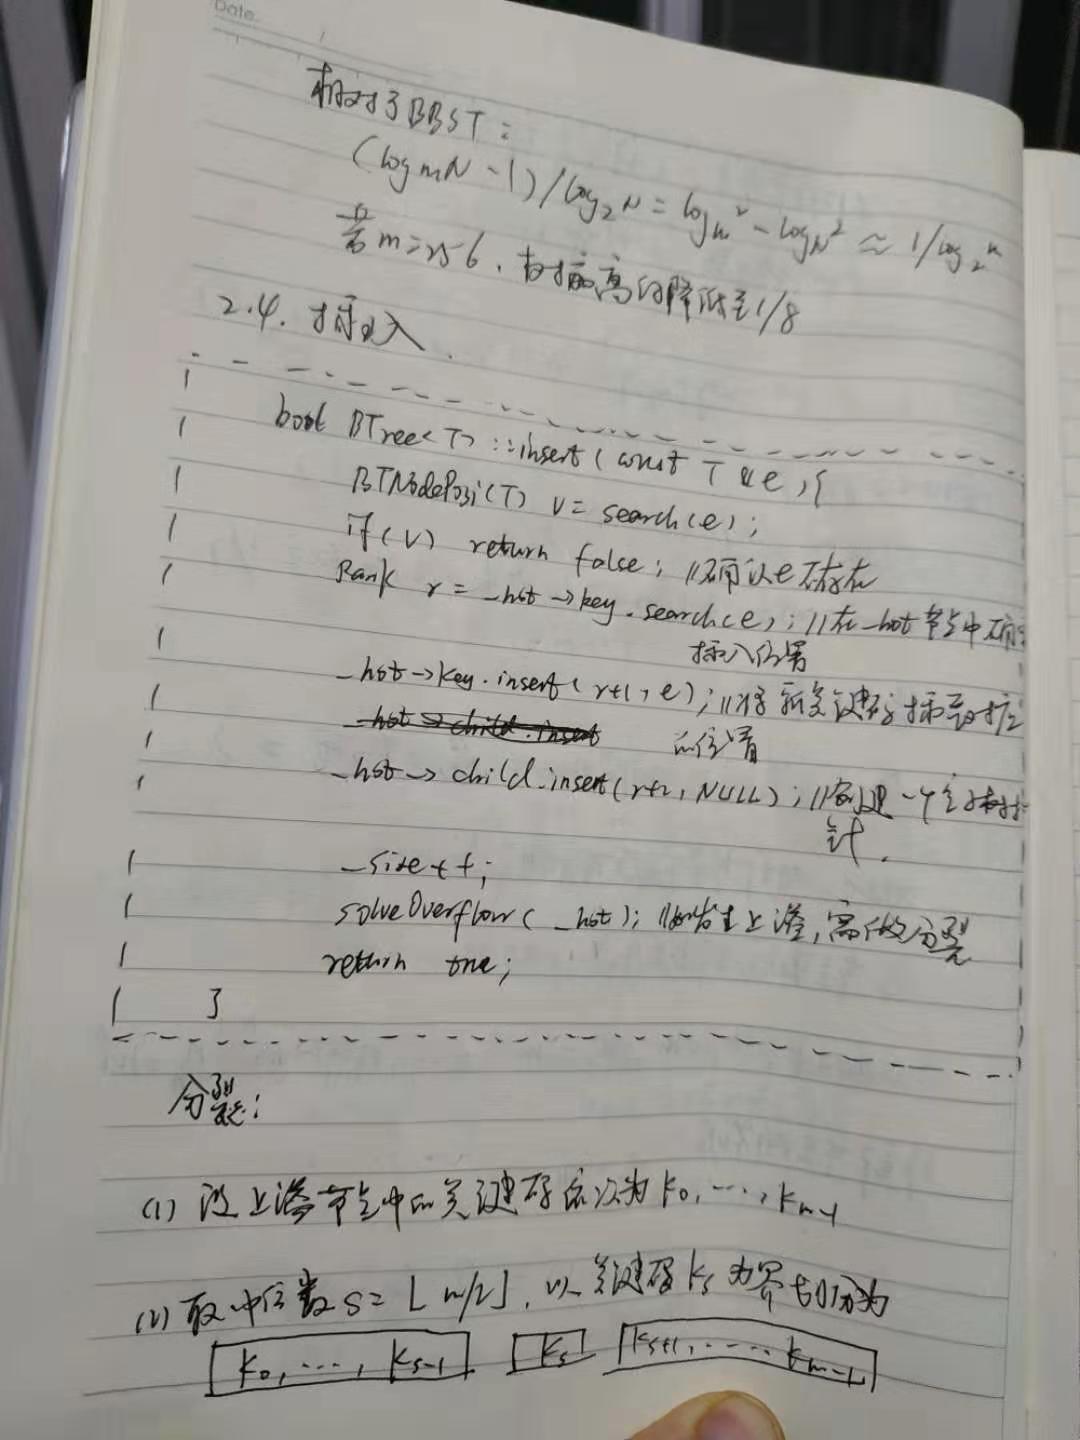 Date.
相对于BBST:
(log_m N - 1) / log_2 N = log_m 2 - log_N 2 ≈ 1/log_2 m
若m=256,树高约降低至1/8
2.4. 插入.
bool BTree<T>::insert(const T &e){
BTNodePosi(T) v = search(e);
if(v) return false; //确认e不存在
Rank r = _hot->key.search(e); //在_hot节点中确定
插入位置
_hot->key.insert(r+1, e); //将新关键码插到对应
的位置
_hot->child.insert
_hot->child.insert(r+2, NULL); //创建一个子树指
针.
_size++;
solveOverflow(_hot); //如发生上溢,需做分裂
return true;
}
分裂:
(1) 设上溢节点中的关键码依次为 k0, ..., km-1
(2) 取中位数 s = ⌊m/2⌋, 以关键码 ks 为界切分为
k0, ..., ks-1 ks ks+1, ..... km-1